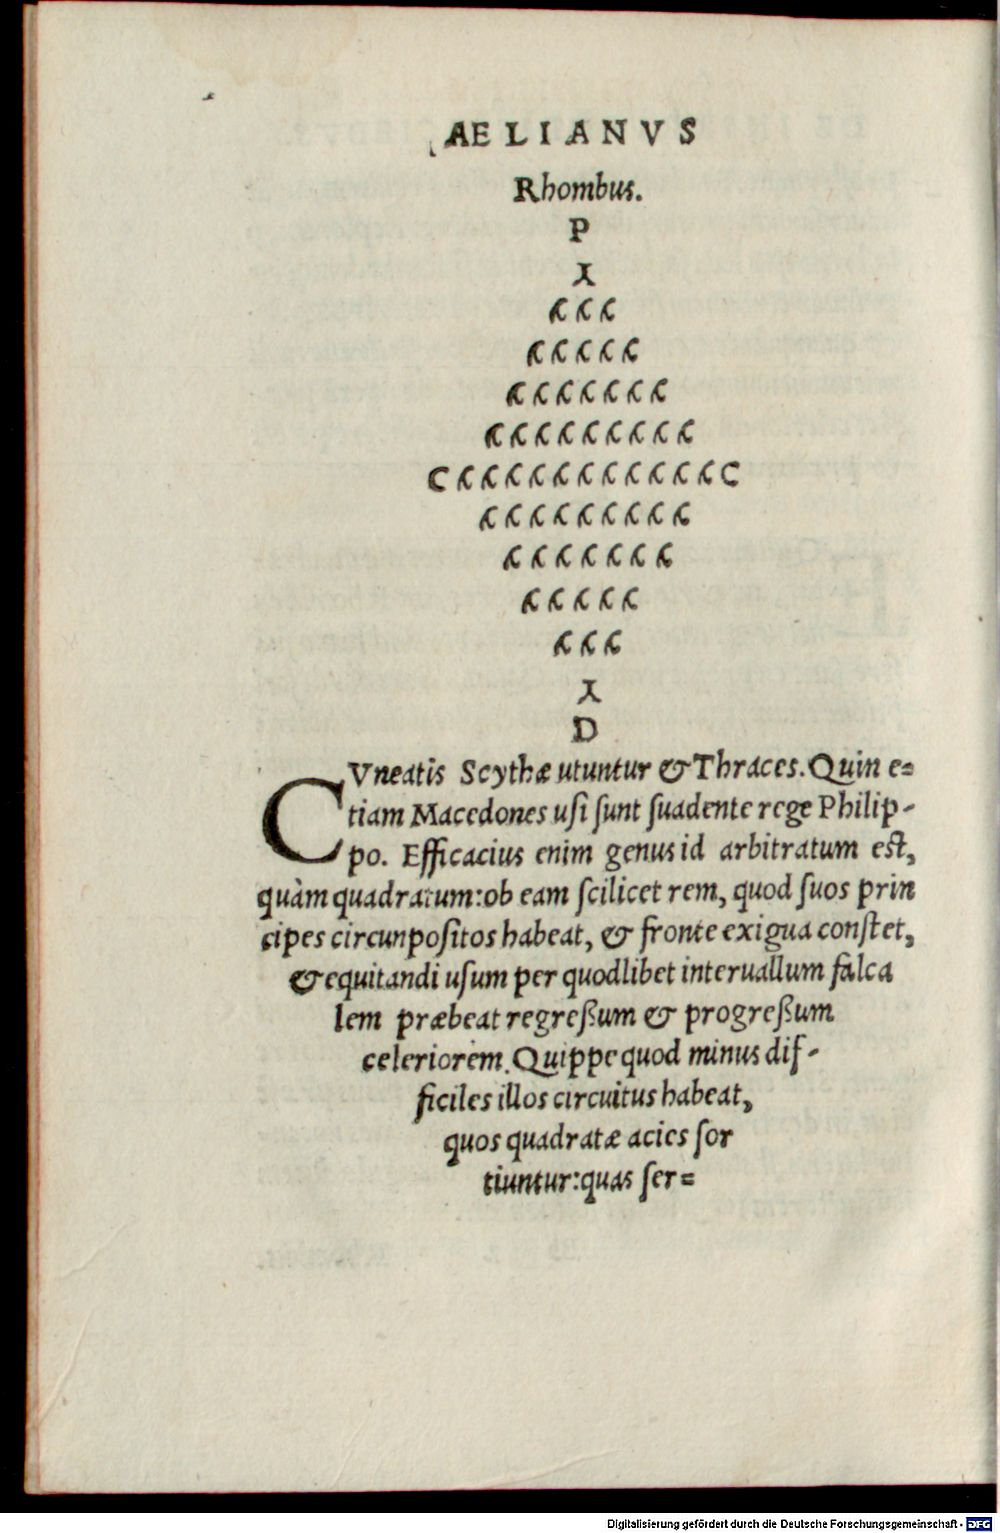 AELIANVS
Rhombus.
P
I
C C C
C C C C C
C C C C C C C
C C C C C C C C C
C C C C C C C C C C C C C
C C C C C C C C C
C C C C C C C
C C C C C
C C C
I
D
CVneatis Scythæ utuntur & Thraces. Quin e=
tiam Macedones usi sunt suadente rege Philip-
po. Efficacius enim genus id arbitratum est,
quàm quadratum: ob eam scilicet rem, quod suos prin
cipes circunpositos habeat, & fronte exigua constet,
& equitandi usum per quodlibet interuallum falca
lem præbeat regreßum & progreßum
celeriorem. Quippe quod minus dif-
ficiles illos circuitus habeat,
quos quadratæ acies sor
tiuntur: quas ser=
Digitalisierung gefördert durch die Deutsche Forschungsgemeinschaft - DFG